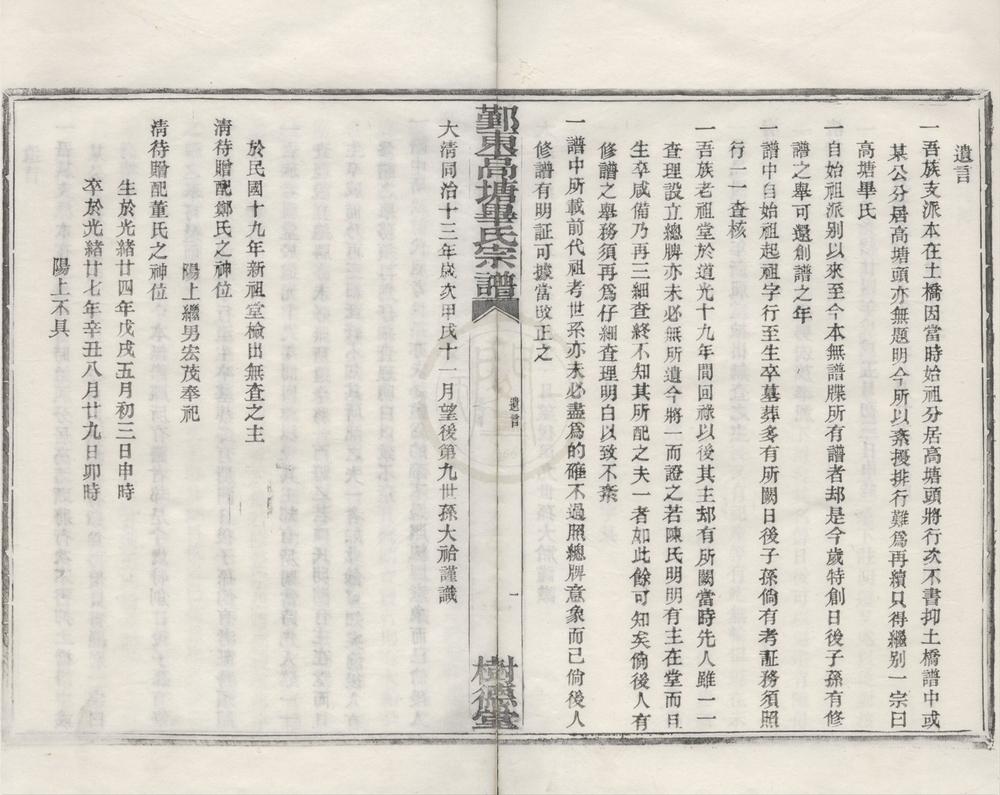 遺言
一吾族支派本在土橋因當時始祖分居高塘頭將行次不書抑土橋譜中或
某公分居高塘頭亦無題明今所以紊擾排行難爲再續只得繼别一宗曰
高塘畢氏
一自始祖派别以來至今本無譜牒所有譜者却是今歲特創日後子孫有修
譜之舉可還創譜之年
一譜中自始祖起祖字行至生卒墓葬多有所闕日後子孫倘有考証務須照
行一一查核
一吾族老祖堂於道光十九年間回祿以後其主却有所闕當時先人雖一一
查理設立總牌亦未必無所遺今將一而證之若陳氏明明有主在堂而且
生卒咸備乃再三細查終不知其所配之夫一者如此餘可知矣倘後人有
修譜之舉務須再爲仔細查理明白以致不紊
一譜中所載前代祖考世系亦未必盡爲的確不過照總牌意象而已倘後人
修譜有明証可據當改正之
鄞東高塘畢氏宗譜
遺言
一
樹德堂
大清同治十三年歲次甲戌十一月望後第九世孫大祫謹識
於民國十九年新祖堂檢出無查之主
清待贈配鄭氏之神位
陽上繼男宏茂奉祀
清待贈配董氏之神位
生於光緒廿四年戊戌五月初三日申時
卒於光緒廿七年辛丑八月廿九日卯時
陽上不具